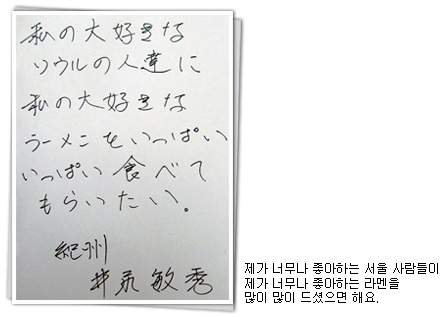 私の大好きな
ソウルの人達に
私の大好きな
ラーメンをいっぱい
いっぱい食べて
もらいたい。
紀州
井永敏秀
제가 너무나 좋아하는 서울 사람들이
제가 너무나 좋아하는 라멘을
많이 많이 드셨으면 해요.